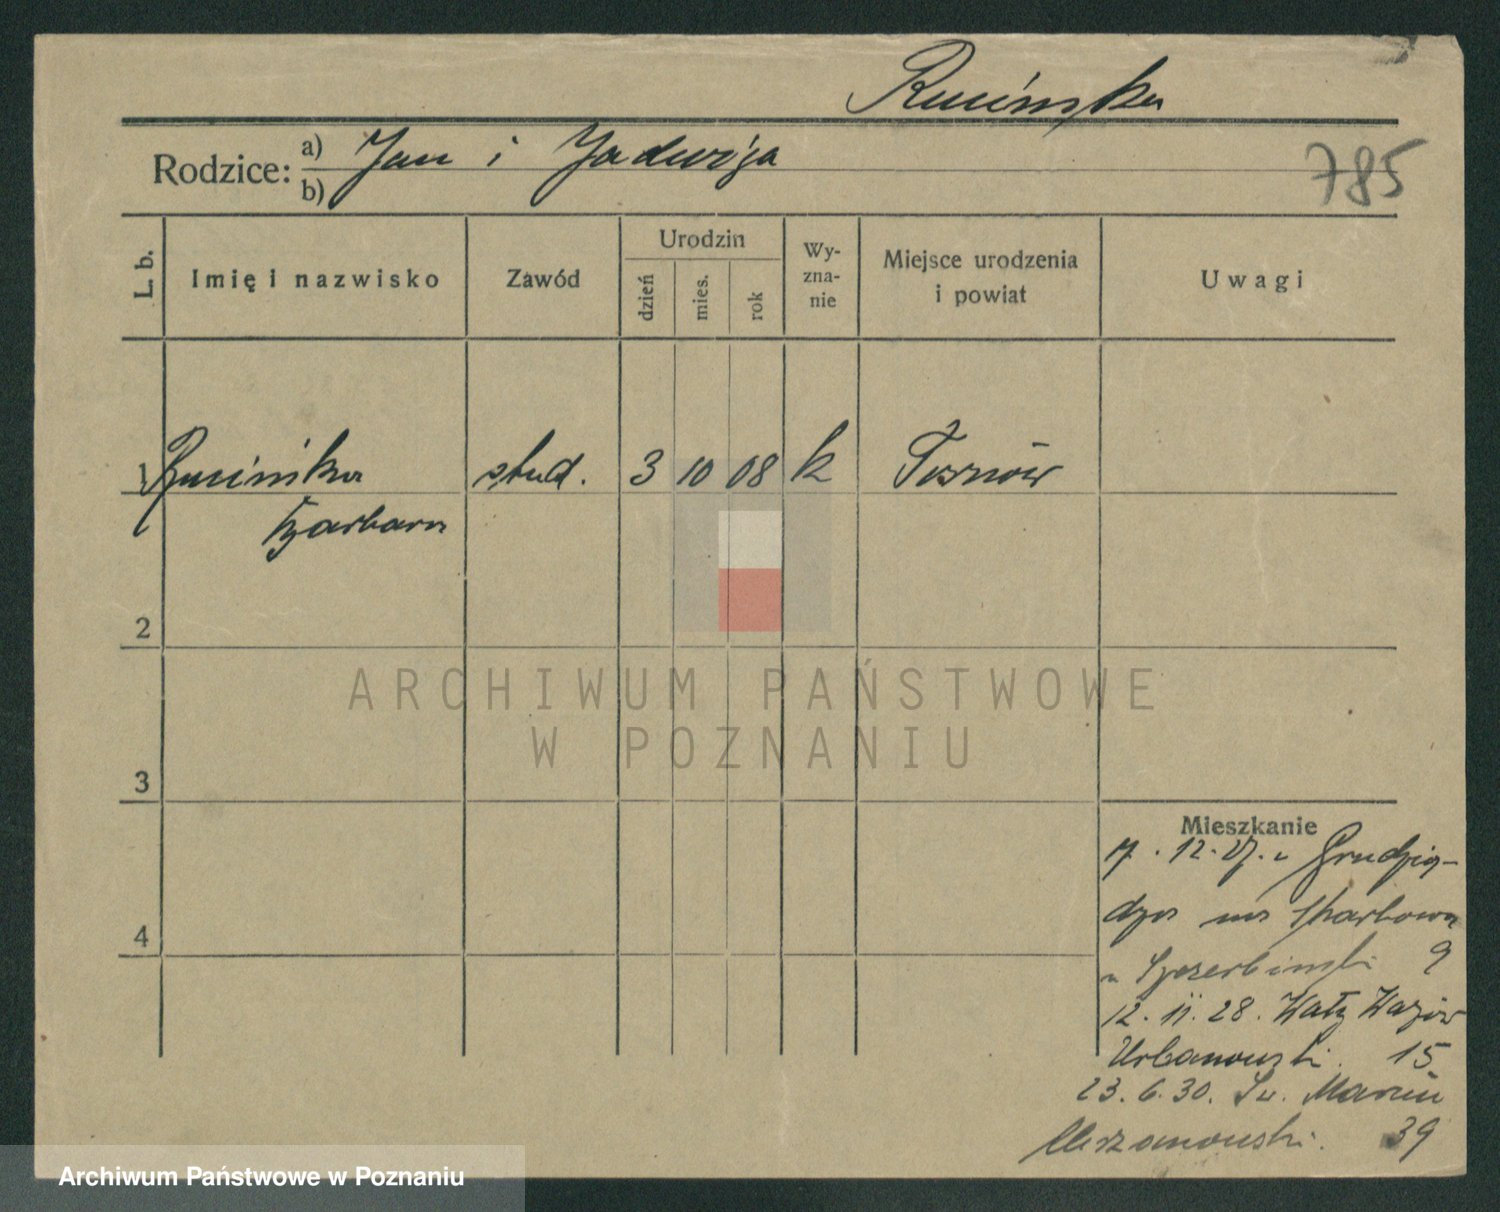 Rucińska
785
Rodzice: a) Jan i Jadwiga
b)
L. b. Imię i nazwisko Zawód Urodzin dzień mies. rok Wy-zna-nie Miejsce urodzenia i powiat Uwagi
1 Rucińska stud. 3 10 08 k
Barbara
2
ARCHIWUM PAŃSTWOWE
W POZNANIU
3
Mieszkanie
12. 27. Grudzią-
dza na Skarbowa
4
9
12. 11. 28. Wały Wazów
Urbanowski. 15
23. 6. 30. Św. Marcin
39
Archiwum Państwowe w Poznaniu